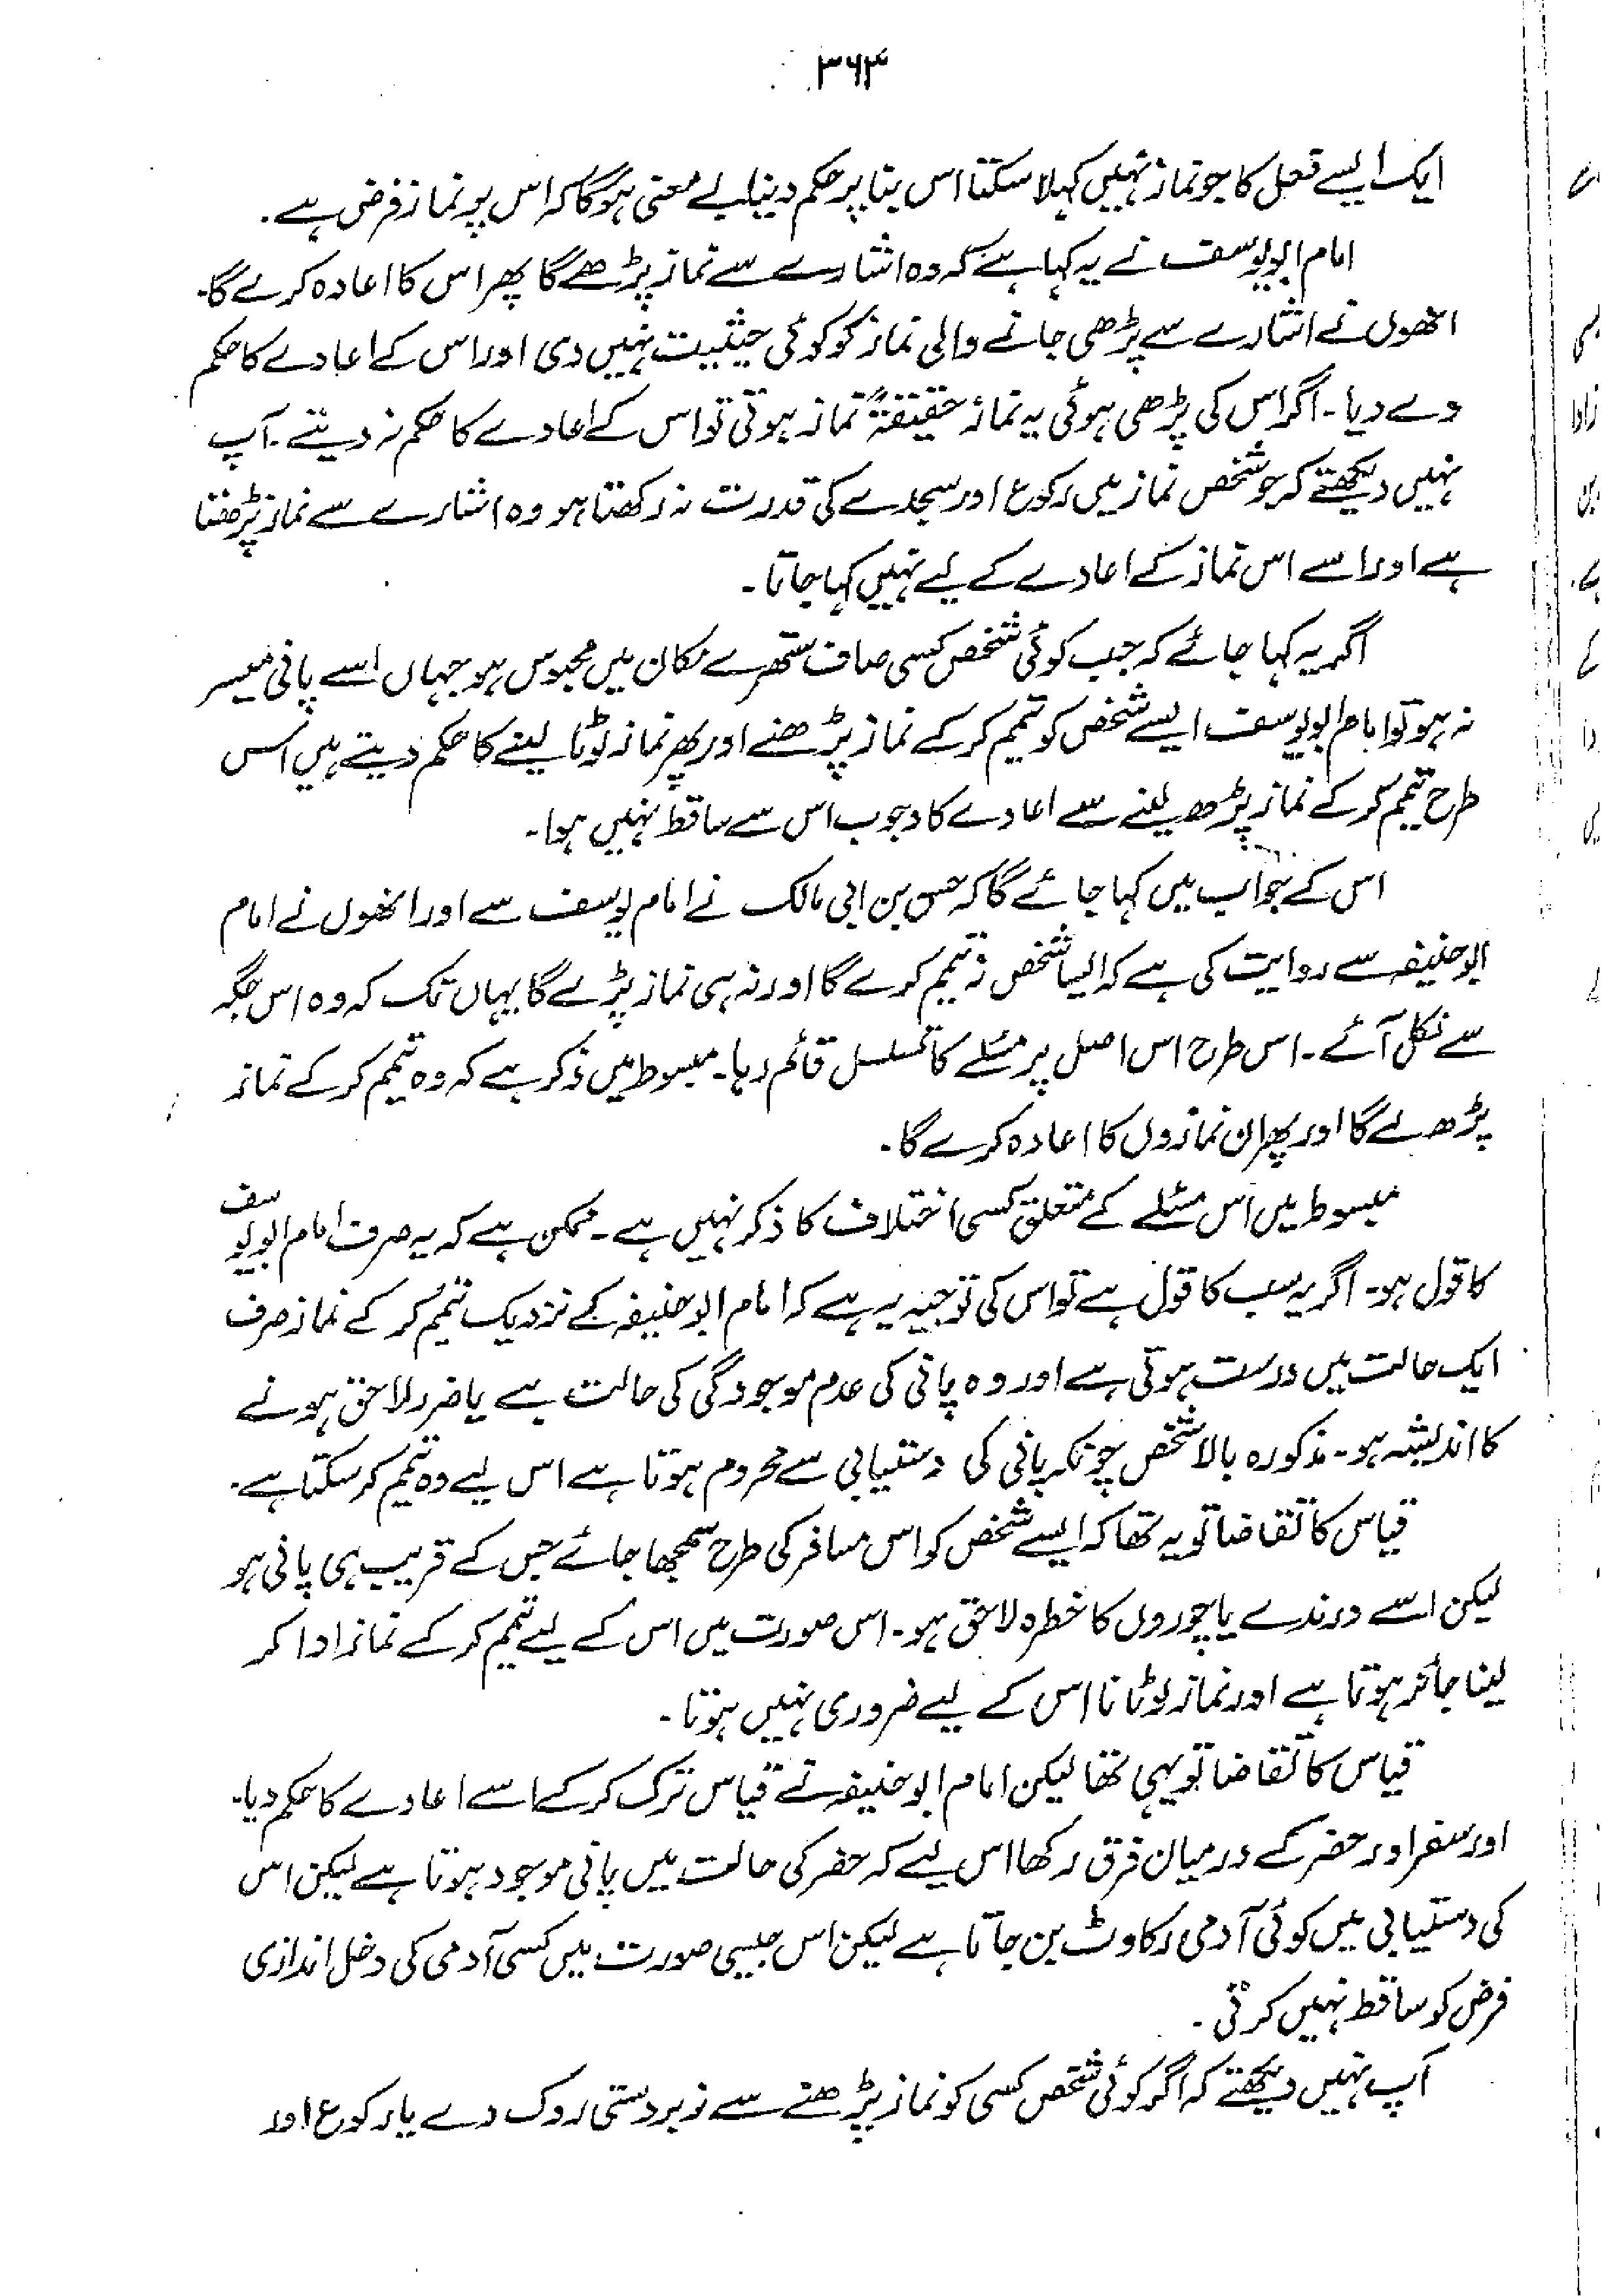 ۳۶۳
ایک ایسے فعل کا جو نماز نہیں کہلا سکتا اس بنا پر حکم دینا بے معنی ہوگا کہ اس پر نماز فرض ہے۔
امام ابو یوسف نے یہ کہا ہے کہ وہ اشارے سے نماز پڑھے گا پھر اس کا اعادہ کرے گا۔
انھوں نے اشارے سے پڑھی جانے والی نماز کو کوئی حیثیت نہیں دی اور اس کے اعادے کا حکم
دے دیا۔ اگر اس کی پڑھی ہوئی یہ نماز حقیقۃً نماز ہوتی تو اس کے اعادے کا حکم نہ دیتے۔ آپ
نہیں دیکھتے کہ جو شخص نماز میں رکوع اور سجدے کی قدرت نہ رکھتا ہو وہ اشارے سے نماز پڑھتا
ہے اور اسے اس نماز کے اعادے کے لیے نہیں کہا جاتا۔
اگر یہ کہا جائے کہ جب کوئی شخص کسی صاف ستھرے مکان میں محبوس ہو جہاں اسے پانی میسر
نہ ہو تو امام ابو یوسف ایسے شخص کو تیمم کر کے نماز پڑھنے اور پھر نماز لوٹا لینے کا حکم دیتے ہیں اس
طرح تیمم کر کے نماز پڑھ لینے سے اعادے کا وجوب اس سے ساقط نہیں ہوا۔
اس کے جواب میں کہا جائے گا کہ حسن بن ابی مالک نے امام یوسف سے اور انھوں نے امام
ابو حنیفہ سے روایت کی ہے کہ ایسا شخص نہ تیمم کرے گا اور نہ ہی نماز پڑے گا یہاں تک کہ وہ اس جگہ
سے نکل آئے۔ اس طرح اس اصل پر مسئلے کا تسلسل قائم رہا۔ مبسوط میں ذکر ہے کہ وہ تیمم کر کے نماز
پڑھ لے گا اور پھر ان نمازوں کا اعادہ کرے گا۔
مبسوط میں اس مسئلے کے متعلق کسی اختلاف کا ذکر نہیں ہے۔ ممکن ہے کہ یہ صرف امام ابو یوسف
کا قول ہو۔ اگر یہ سب کا قول ہے تو اس کی توجیہ یہ ہے کہ امام ابو حنیفہ کے نزدیک تیمم کر کے نماز صرف
ایک حالت میں درست ہوتی ہے اور وہ پانی کی عدم موجودگی کی حالت ہے یا ضرر لاحق ہونے
کا اندیشہ ہو۔ مذکورہ بالا شخص چونکہ پانی کی دستیابی سے محروم ہوتا ہے اس لیے وہ تیمم کر سکتا ہے۔
قیاس کا تقاضا تو یہ تھا کہ ایسے شخص کو اس مسافر کی طرح سمجھا جائے جس کے قریب ہی پانی ہو
لیکن اسے درندے یا چوروں کا خطرہ لاحق ہو۔ اس صورت میں اس کے لیے تیمم کر کے نماز ادا کر
لینا جائز ہوتا ہے اور نماز لوٹانا اس کے لیے ضروری نہیں ہوتا۔
قیاس کا تقاضا تو یہی تھا لیکن امام ابو حنیفہ نے قیاس ترک کر کے اسے اعادے کا حکم دیا۔
اور سفر اور حضر کے درمیان فرق رکھا اس لیے کہ حضر کی حالت میں پانی موجود ہوتا ہے لیکن اس
کی دستیابی میں کوئی آدمی رکاوٹ بن جاتا ہے لیکن اس جیسی صورت میں کسی آدمی کی دخل اندازی
فرض کو ساقط نہیں کرتی۔
آپ نہیں دیکھتے کہ اگر کوئی شخص کسی کو نماز پڑھنے سے زبردستی روک دے یا رکوع اور